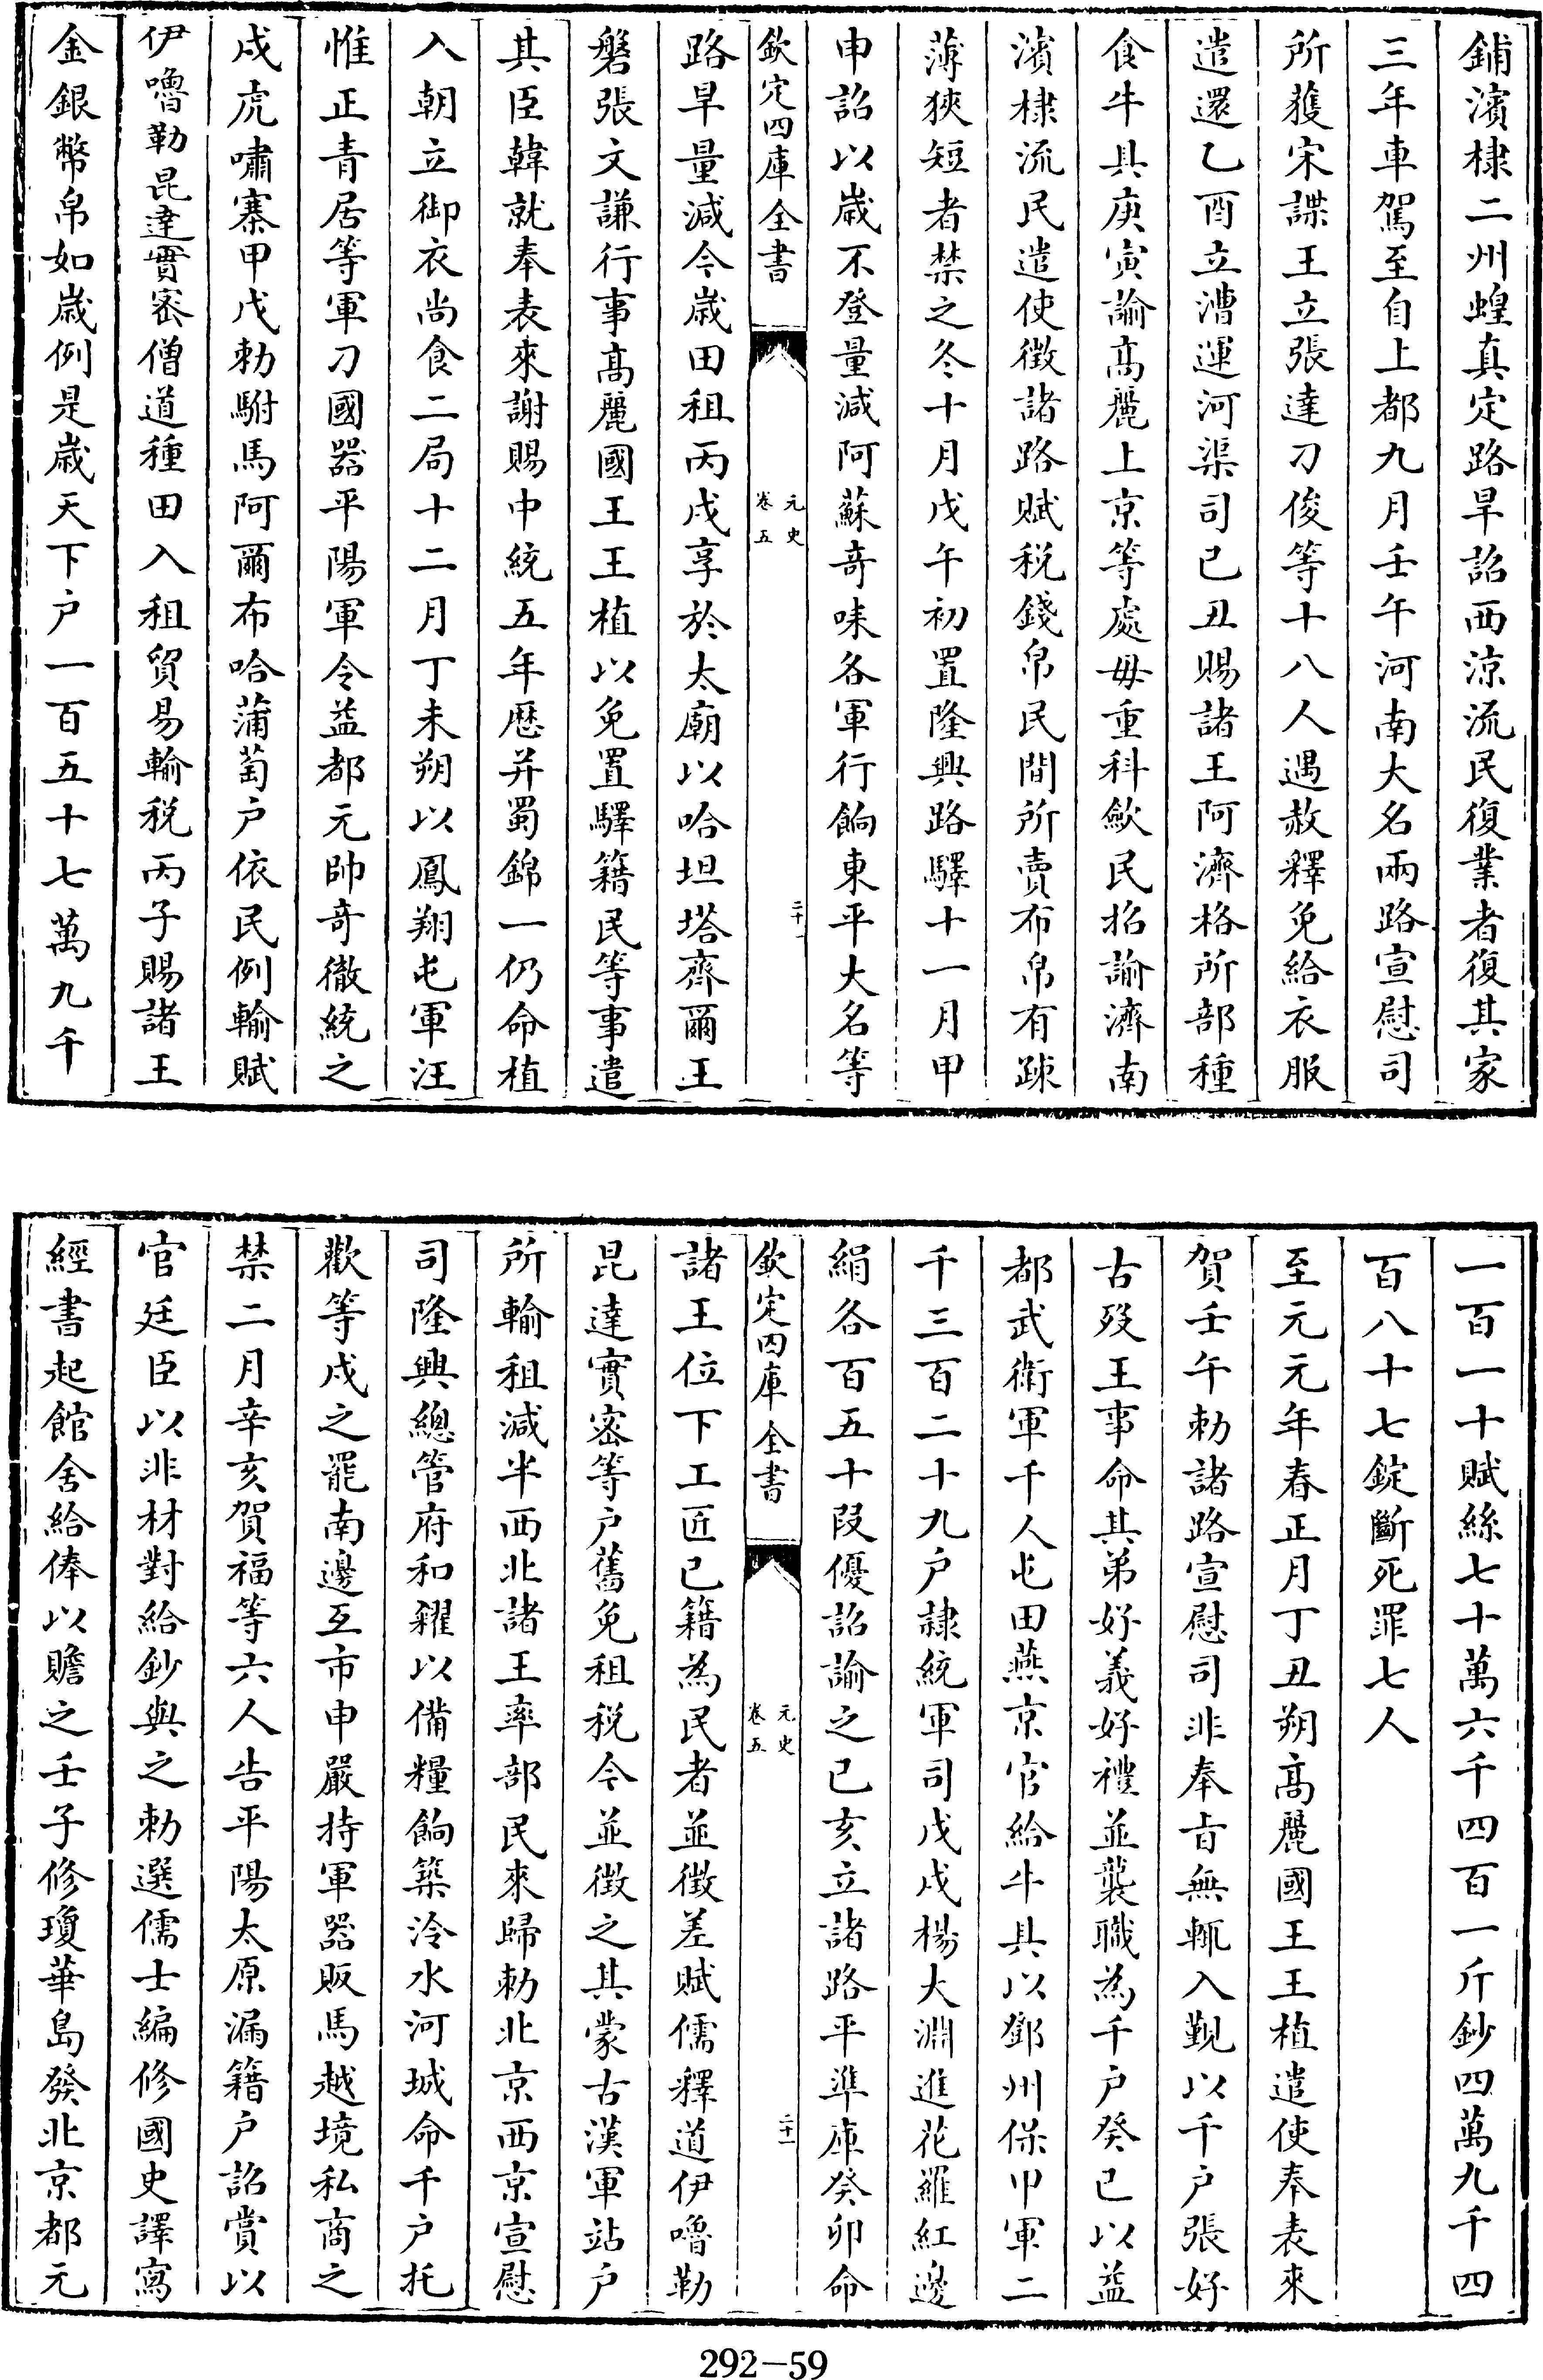 鋪濱棣二州蝗真定路旱詔西涼流民復業者復其家
三年車駕至自上都九月壬午河南大名兩路宣慰司
所獲宋諜王立張達刁俊等十八人遇赦釋免給衣服
遣還乙酉立漕運河渠司己丑賜諸王阿濟格所部種
食牛具庚寅諭髙麗上京等處毋重科歛民招諭濟南
濱棣流民遣使徴諸路賦税錢帛民間所賣布帛有疎
薄狹短者禁之冬十月戊午初置隆興路驛十一月甲
申詔以歲不登量減阿蘇竒味各軍行餉東平大名等
欽定四庫全書
元史
卷五
二十一
路旱量減今歲田租丙戌享於太廟以哈坦塔齊爾王
磐張文謙行事髙麗國王王植以免置驛籍民等事遣
其臣韓就奉表來謝賜中統五年厯并蜀錦一仍命植
入朝立御衣尚食二局十二月丁未朔以鳳翔屯軍汪
惟正青居等軍刀國器平陽軍令益都元帥竒徹統之
戍虎嘯寨甲戌勅駙馬阿爾布哈蒲萄户依民例輸賦
伊嚕勒昆達實密僧道種田入租貿易輸税丙子賜諸王
金銀幣帛如歲例是歲天下户一百五十七萬九千
一百一十賦絲七十萬六千四百一斤鈔四萬九千四
百八十七錠斷死罪七人
至元元年春正月丁丑朔髙麗國王王植遣使奉表來
賀壬午勅諸路宣慰司非奉㫖無輒入覲以千户張好
古殁王事命其弟好義好禮並襲職為千户癸巳以益
都武衛軍千人屯田燕京官給牛具以鄧州保甲軍二
千三百二十九户隷統軍司戊戌楊大淵進花羅紅邊
絹各百五十段優詔諭之己亥立諸路平準庫癸卯命
欽定四庫全書
元史
卷五
二十一
諸王位下工匠已籍為民者並徴差賦儒釋道伊嚕勒
昆達實密等户舊免租税今並徴之其蒙古漢軍站户
所輸租減半西北諸王率部民來歸勅北京西京宣慰
司隆興總管府和糴以備糧餉築泠水河城命千户托
歡等戍之罷南邊互市申嚴持軍器販馬越境私商之
禁二月辛亥賀福等六人告平陽太原漏籍户詔賞以
官廷臣以非材對給鈔與之勅選儒士編修國史譯寫
經書起館舍給俸以贍之壬子修瓊華島發北京都元
292-59